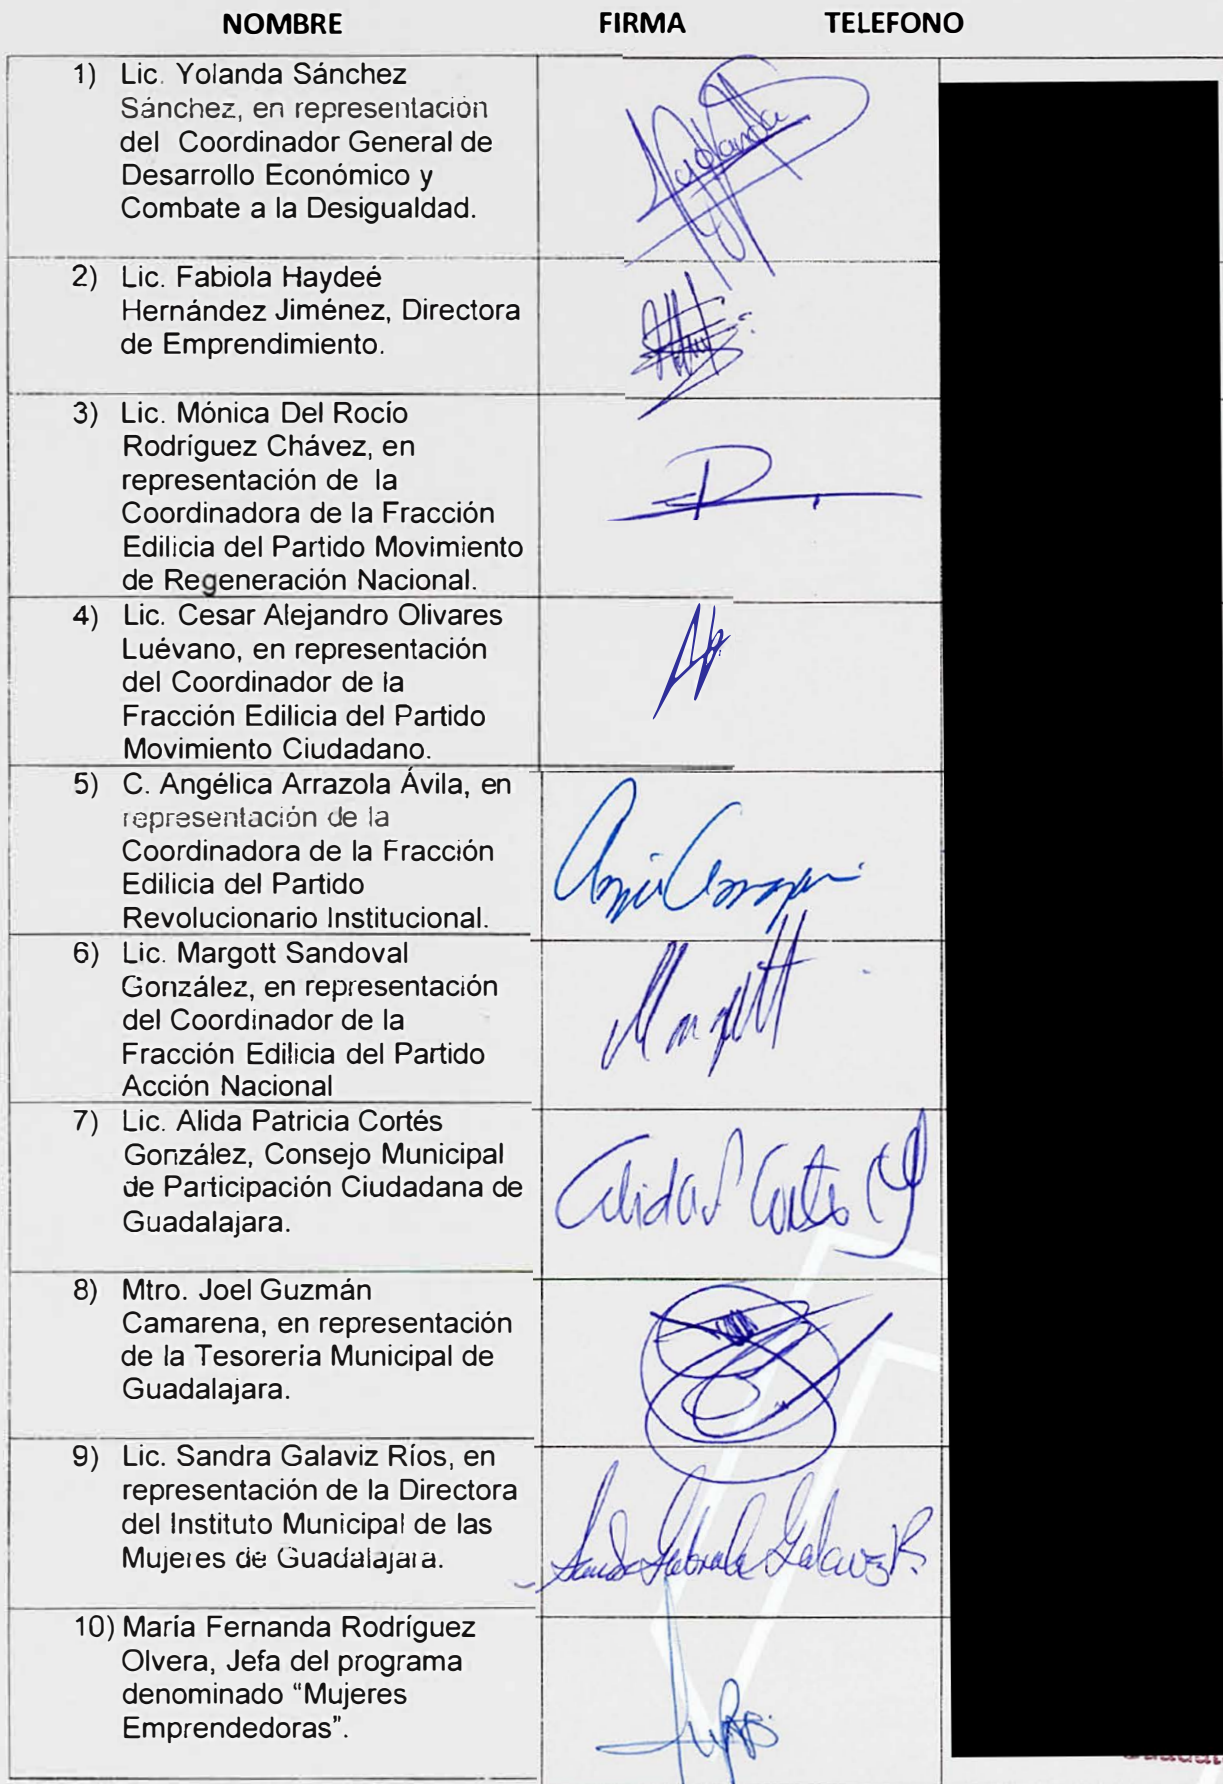 NOMBRE FIRMA TELEFONO
1) Lic. Yolanda Sánchez
Sánchez, en representación
del Coordinador General de
Desarrollo Económico y
Combate a la Desigualdad.
Yolanda
2) Lic. Fabiola Haydeé
Hernández Jiménez, Directora
de Emprendimiento.
3) Lic. Mónica Del Rocío
Rodríguez Chávez, en
representación de la
Coordinadora de la Fracción
Edilicia del Partido Movimiento
de Regeneración Nacional.
4) Lic. Cesar Alejandro Olivares
Luévano, en representación
del Coordinador de la
Fracción Edilicia del Partido
Movimiento Ciudadano.
5) C. Angélica Arrazola Ávila, en
representación de la
Coordinadora de la Fracción
Edilicia del Partido
Revolucionario Institucional.
6) Lic. Margott Sandoval
González, en representación
del Coordinador de la
Fracción Edilicia del Partido
Acción Nacional
Margott
7) Lic. Alida Patricia Cortés
González, Consejo Municipal
de Participación Ciudadana de
Guadalajara.
Alida P Cortes G
8) Mtro. Joel Guzmán
Camarena, en representación
de la Tesorería Municipal de
Guadalajara.
9) Lic. Sandra Galaviz Ríos, en
representación de la Directora
del Instituto Municipal de las
Mujeres de Guadalajara.
Sandra Gabriela Galaviz R.
10) María Fernanda Rodríguez
Olvera, Jefa del programa
denominado “Mujeres
Emprendedoras”.